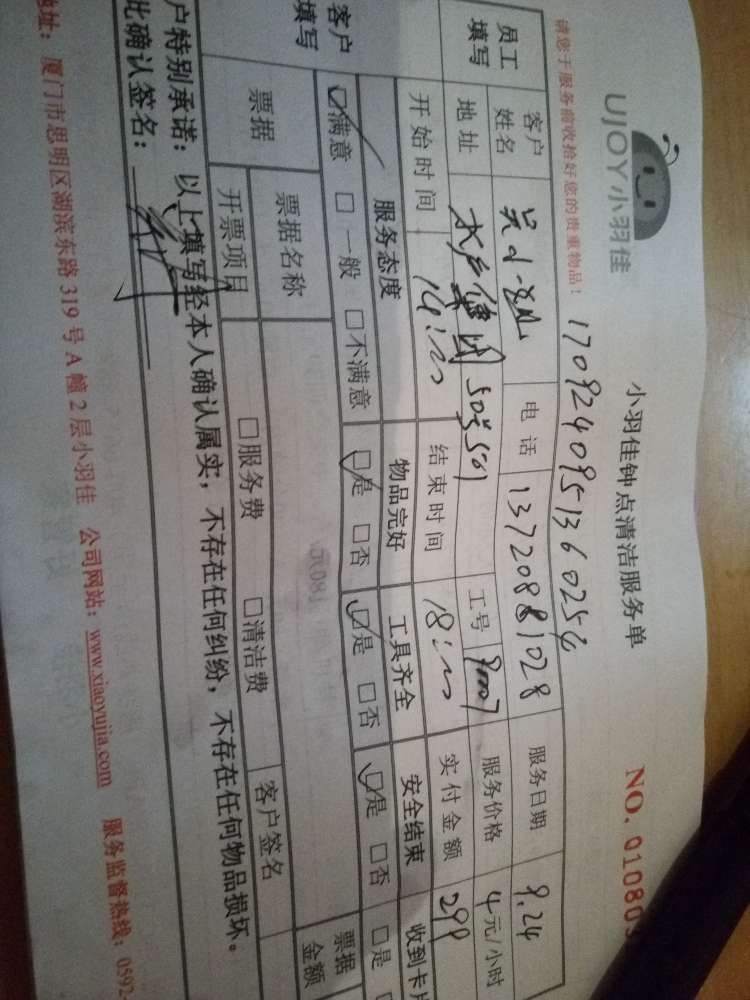 UJOY小羽佳
小羽佳钟点清洁服务单
NO. 01080
请您于服务前收拾好您的贵重物品！
1709240951360254
员工填写
客户姓名
电话 13720881028
服务日期 9.24
地址
50号501
工号
服务价格 4元/小时
开始时间 14:00
结束时间 18:00
实付金额 299
客户填写
服务态度 物品完好 工具齐全 安全结束 收到卡片
☑满意 □一般 □不满意 ☑是 □否 ☑是 □否 ☑是 □否 □是
票据
票据名称
票据金额
开票项目 □服务费 □清洁费
客户签名
户特别承诺：以上填写经本人确认属实，不存在任何纠纷，不存在任何物品损坏。
此确认签名：
地址：厦门市思明区湖滨东路319号A幢2层小羽佳 公司网站：www.xiaoyujia.com 服务监督热线：0592-